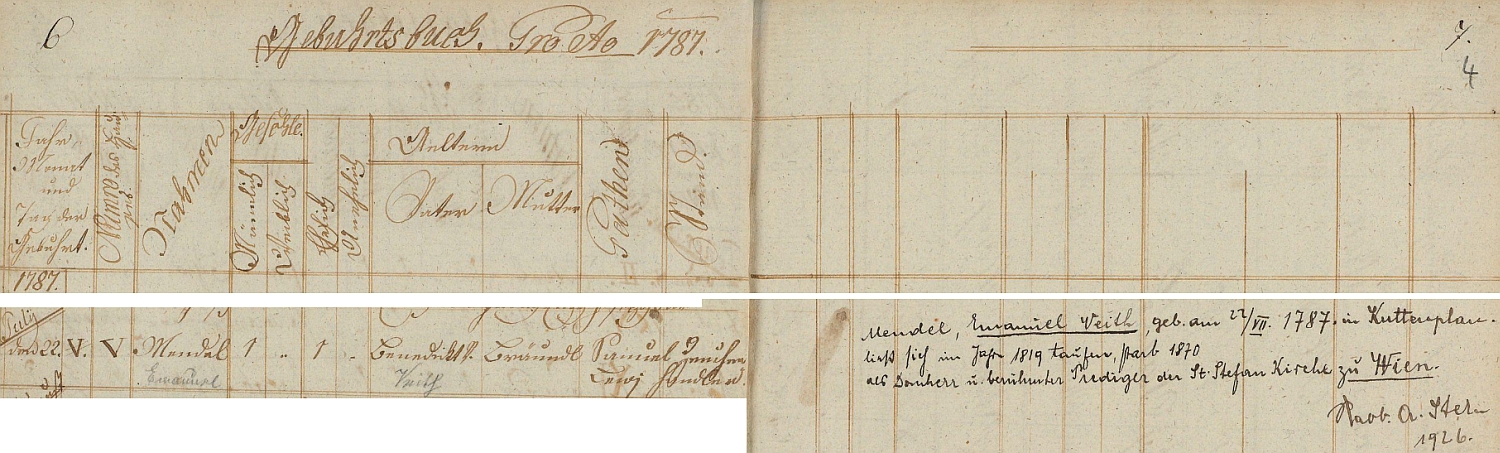 6
Gebuhrtsbuch. Pro Ao 1787.
7.
4
Jahr
Monat
und
Tag der
Gebuhrt.
Numero des Hau
ses
Nahmen
Geschle.
Männlich
Weiblich
Ehelich
Unehelich
Aeltern
Vater
Mutter
Pathen
Stand.
1787.
July
den 22. V. V Mendel 1 .. 1 . Benedikt Bräundl Samuel
Emanuel Veith
Mendel, Emanuel Veith, geb. am 22/VII. 1787. in Kuttenplan.
ließ sich im Jahre 1819 taufen, starb 1870
als Domherr u. berühmter Prediger der St. Stefan Kirche zu Wien.
Rabb. A. Stern
1926.